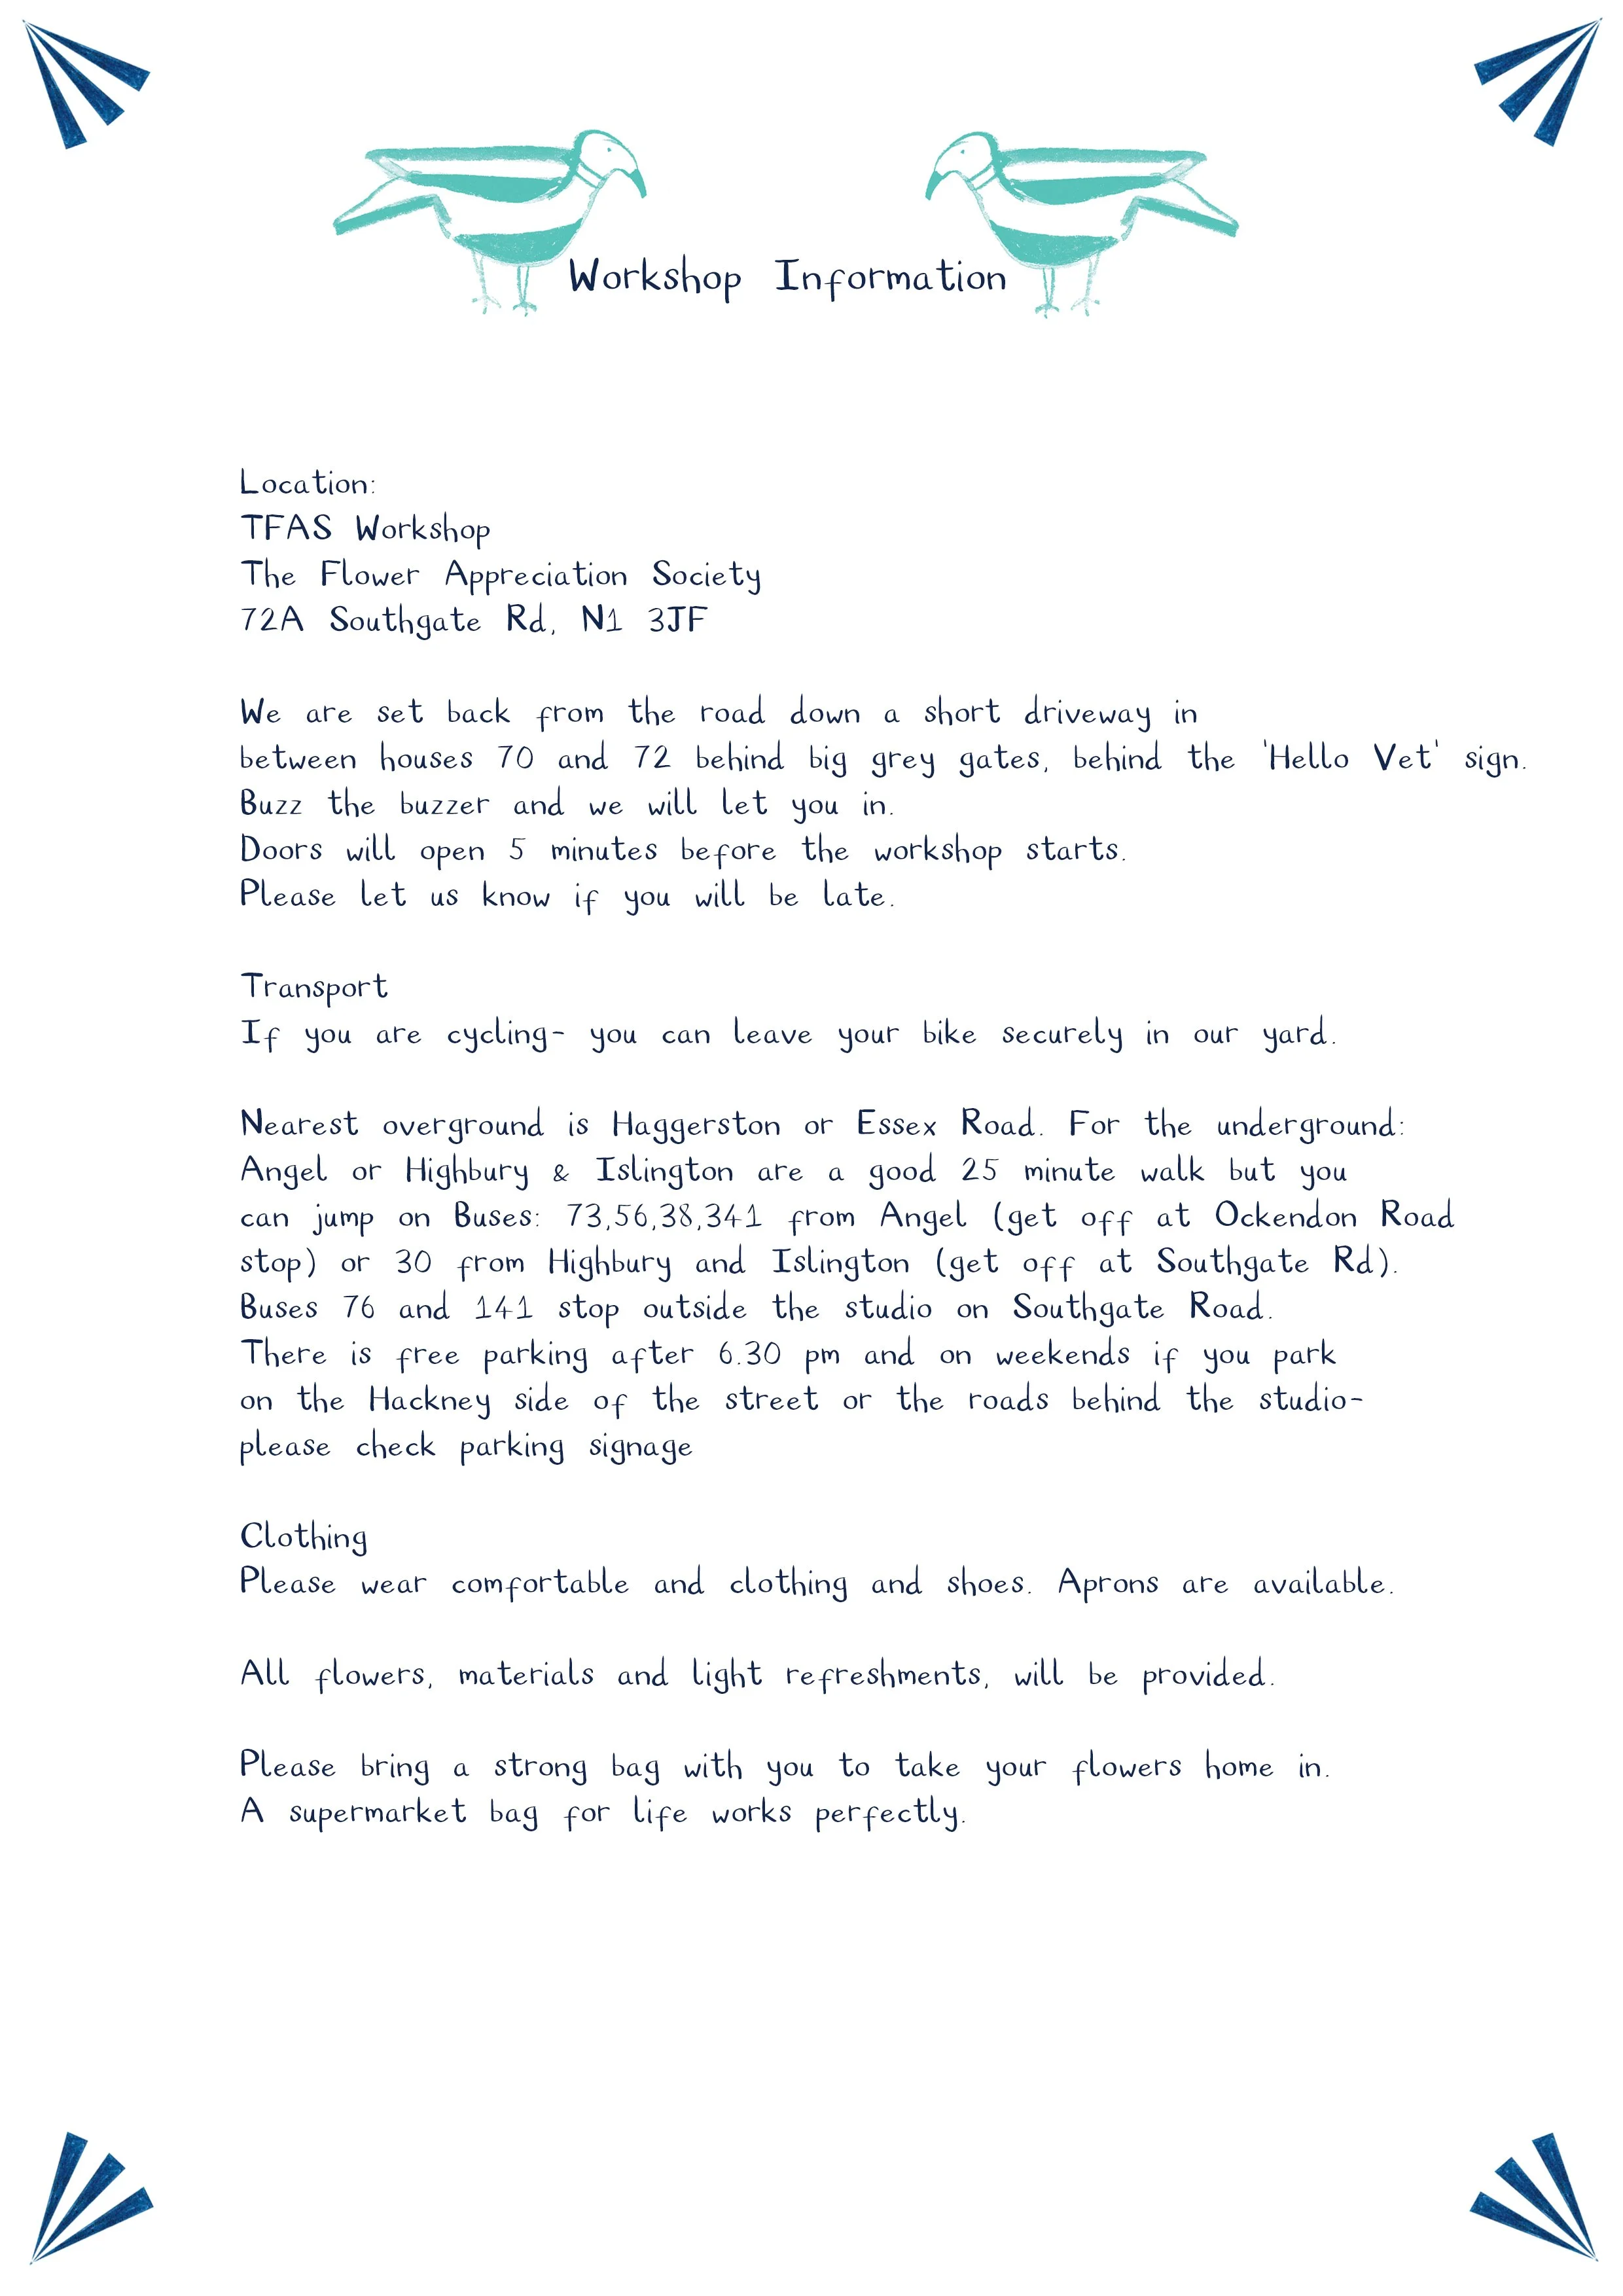 Workshop Information
Location:
TFAS Workshop
The Flower Appreciation Society
72A Southgate Rd, N1 3JF
We are set back from the road down a short driveway in
between houses 70 and 72 behind big grey gates, behind the 'Hello Vet' sign.
Buzz the buzzer and we will let you in.
Doors will open 5 minutes before the workshop starts.
Please let us know if you will be late.
Transport
If you are cycling- you can leave your bike securely in our yard.
Nearest overground is Haggerston or Essex Road. For the underground:
Angel or Highbury & Islington are a good 25 minute walk but you
can jump on Buses: 73,56,38,341 from Angel (get off at Ockendon Road
stop) or 30 from Highbury and Islington (get off at Southgate Rd).
Buses 76 and 141 stop outside the studio on Southgate Road.
There is free parking after 6.30 pm and on weekends if you park
on the Hackney side of the street or the roads behind the studio-
please check parking signage
Clothing
Please wear comfortable and clothing and shoes. Aprons are available.
All flowers, materials and light refreshments, will be provided.
Please bring a strong bag with you to take your flowers home in.
A supermarket bag for life works perfectly.